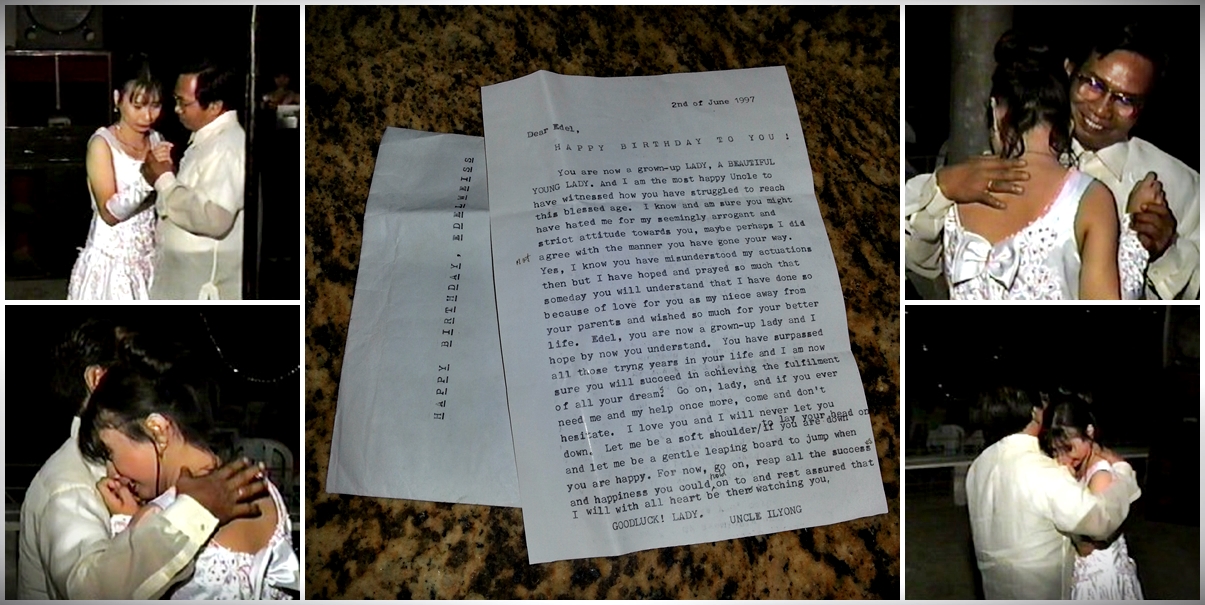 HAPPY BIRTHDAY, EDELWEISS
2nd of June 1997
Dear Edel,
HAPPY BIRTHDAY TO YOU !
You are now a grown-up LADY, A BEAUTIFUL
YOUNG LADY. And I am the most happy Uncle to
have witnessed how you have struggled to reach
this blessed age. I know and am sure you might
have hated me for my seemingly arrogant and
strict attitude towards you, maybe perhaps I did
not agree with the manner you have gone your way.
Yes, I know you have misunderstood my actuations
then but I have hoped and prayed so much that
someday you will understand that I have done so
because of love for you as my niece away from
your parents and wished so much for your better
life. Edel, you are now a grown-up lady and I
hope by now you understand. You have surpassed
all those tryng years in your life and I am now
sure you will succeed in achieving the fulfilment
of all your dreams. Go on, lady, and if you ever
need me and my help once more, come and don't
hesitate. I love you and I will never let you
down. Let me be a soft shoulder/if you are down
to lay your head on
and let me be a gentle leaping board to jump when
you are happy. For now, go on, reap all the success
and happiness you could on to and rest assured that
I will with all heart be there watching you,
GOODLUCK! LADY. UNCLE ILYONG